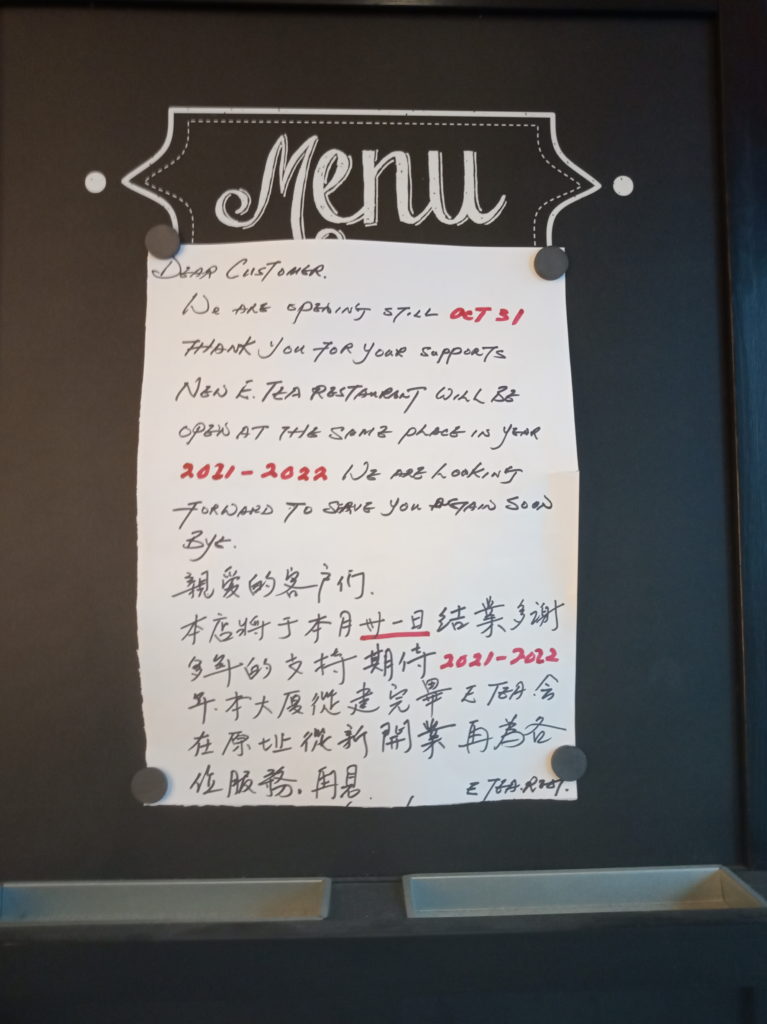 Menu
DEAR CUSTOMER.
We ARE OPENING STILL OCT 31
THANK YOU FOR YOUR SUPPORTS
NEW E. TEA RESTAURANT WILL BE
OPEN AT THE SAME PLACE IN YEAR
2021-2022 WE ARE LOOKING
FORWARD TO SERVE YOU AGAIN SOON
BYE.
親爱的客户们.
本店將于本月卅一日結業多謝
多年的支持 期待 2021-2022
年.本大厦從建完畢 E TEA.会
在原址從新開業再為各
位服務.再見.
E TEA.REST.